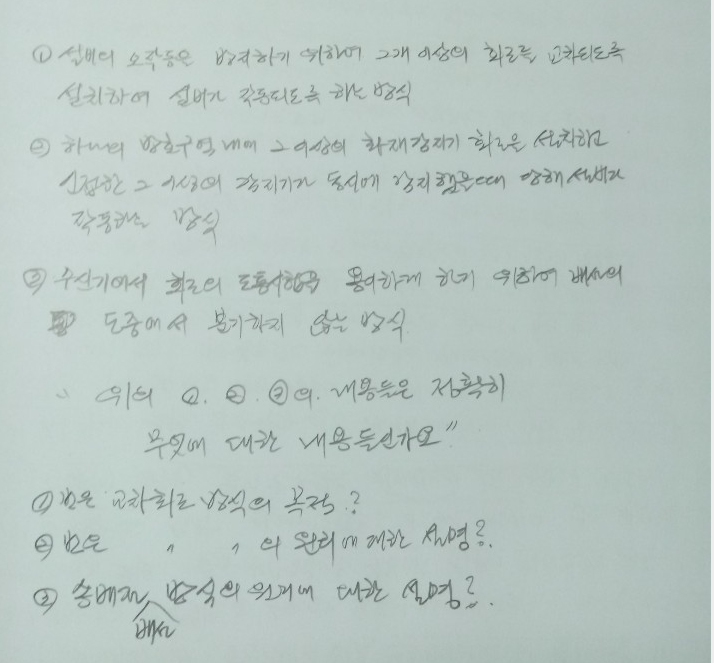 ①설비의 오작동을 방지하기 위하여 2개 이상의 회로를 교차되도록
설치하여 설비가 작동되도록 하는 방식
② 하나의 방호구역내에 2 이상의 화재감지기 회로를 설치하고
인접한 2 이상의 감지기가 동시에 감지했을때 당해 설비가
작동하는 방식
③ 수신기에서 회로의 도통시험을 용이하게 하기 위하여 배선의
도중에서 분기하지 않는 방식
위의 ①. ②. ③의. 내용들은 정확히
무엇에 대한 내용들인가요"
①번은 교차회로 방식의 목적?
②번은 〃 〃 의 원리에 대한 설명?.
③ 송배전 방식의 원리에 대한 설명?.
배선